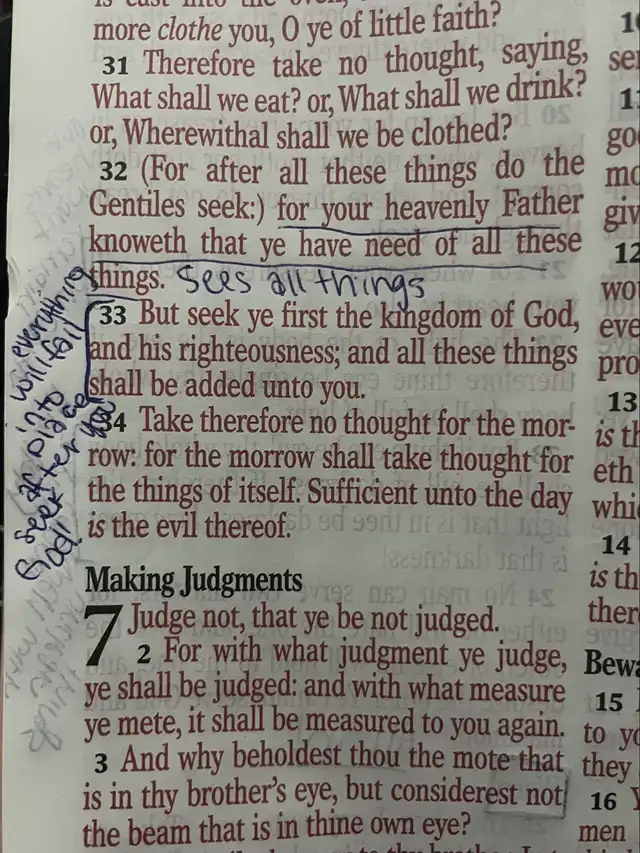 is cast into the oven,
more clothe you, O ye of little faith?
31 Therefore take no thought, saying,
What shall we eat? or, What shall we drink?
or, Wherewithal shall we be clothed?
32 (For after all these things do the
Gentiles seek:) for your heavenly Father
knoweth that ye have need of all these
things. Sees all things
33 But seek ye first the kingdom of God,
and his righteousness; and all these things
shall be added unto you.
34 Take therefore no thought for the mor-
row: for the morrow shall take thought for
the things of itself. Sufficient unto the day
is the evil thereof.
everything
will fall
into
place
seek after
God!
Making Judgments
7 Judge not, that ye be not judged.
2 For with what judgment ye judge,
ye shall be judged: and with what measure
ye mete, it shall be measured to you again.
3 And why beholdest thou the mote that
is in thy brother's eye, but considerest not
the beam that is in thine own eye?
11
go
giv
12
eve
pro
13
is th
eth
whi
14
is th
ther
Bewa
15
to yo
they
16 Y
men